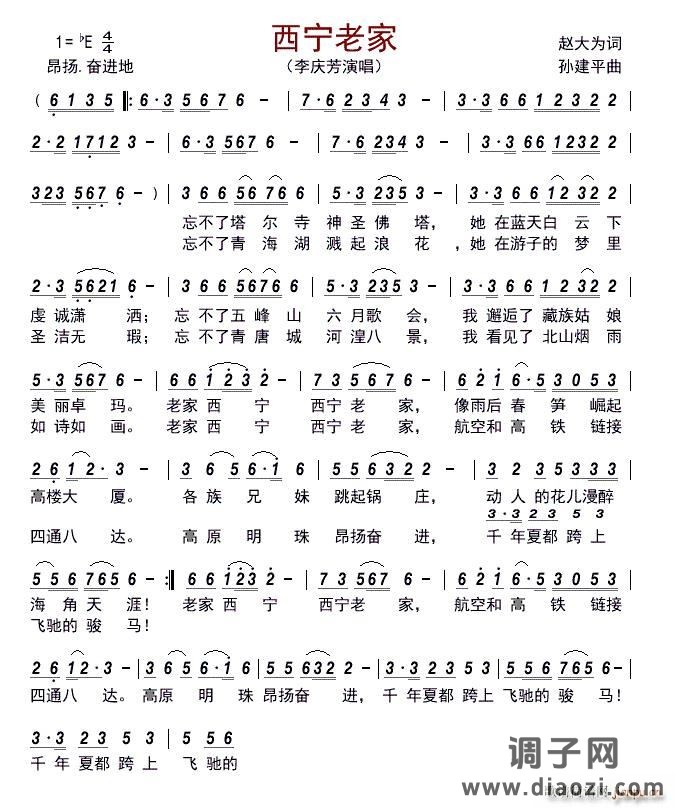 西宁老家
1= ♭E 4/4
赵大为词
昂扬.奋进地
（李庆芳演唱）
孙建平曲
( 6 1 3 5 ‖: 6·3 5 6 7 6 - | 7·6 2 3 4 3 - | 3·3 3 6 1 2 3 2 2 - |
2·2 1 7 1 2 3 - | 6·3 5 6 7 6 - | 7·6 2 3 4 3 - | 3·3 3 6 1 2 3 2 2 - |
3 2 3 5 6 7 6 - ) | 3 6 6 5 6 7 6 6 | 5·3 2 3 5 3 - | 3·3 6 6 1 2 3 2 2 |
忘不了塔 尔 寺 神 圣 佛 塔， 她 在蓝天白 云 下
忘不了青 海 湖 溅 起 浪 花 ，她 在游子的 梦 里
2·3 5 6 2 1 6 - | 3 6 6 5 6 7 6 6 | 5·3 2 3 5 3 - | 3·3 6 6 1 2 3 2 2 |
虔 诚潇 洒； 忘 不了五 峰 山 六 月歌 会， 我 邂逅了 藏族姑 娘
圣 洁无 瑕； 忘 不了青 唐 城 河 湟八 景， 我 看见了 北山烟 雨
5·3 5 6 7 6 - | 6 6 1 2 3 2 - | 7 3 5 5 6 7 6 - | 6 2 1 6·5 3 0 5 3 |
美 丽卓 玛。 老家 西 宁 西宁 老 家， 像雨后 春 笋 崛起
如 诗如 画。 老家 西 宁 西宁 老 家， 航空和 高 铁 链接
2 6 1 2·3 - | 3 6 5 6·1 6 | 5 5 5 6 3 2 2 - | 3 2 3 3 0 5 3 |
高楼大 厦。 各 族 兄 妹 跳起锅 庄， 动 人 的花儿漫醉
3·3 2 3 5 3
四通八 达。 高 原 明 珠 昂扬奋 进， 千 年夏都 跨 上
5 5 6 7 6 5 6 - :‖ 6 6 1 2 3 2 - | 7 3 5 5 6 7 6 - | 6 2 1 6·5 3 0 5 3 |
海 角 天 涯！ 老家 西 宁 西宁老 家， 航空和 高 铁 链接
飞驰的 骏 马！
2 6 1 2·3 - | 3 6 3 5 6·1 6 | 5 5 5 6 3 2 2 - | 3·3 2 3 5 3 | 5 5 6 7 6 5 6 - |
四通八 达。高原 明 珠 昂扬奋 进，千 年夏都 跨上 飞驰的骏 马！
3·3 2 3 5 3 | 5 5 6
千 年 夏都 跨 上 飞 驰的
调子网
www.diaozi.com